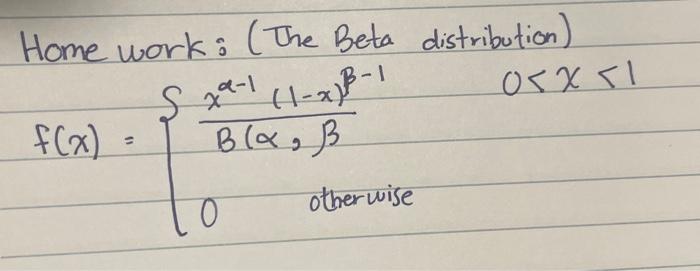 Home work: (The Beta distribution)
x^α-1 (1-x)^β-1 0<x<1
f(x) = {
B(α, β
0 otherwise